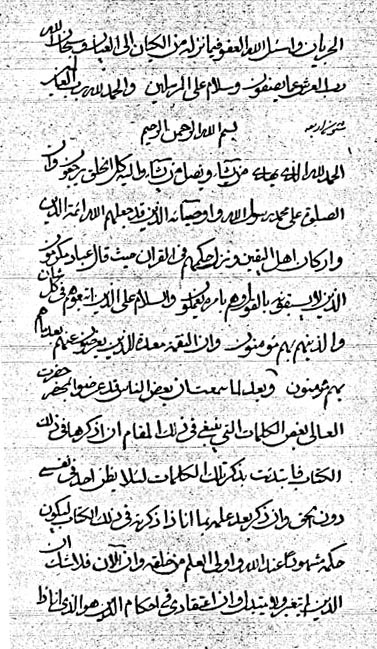 الجريان واسئل الله العفو فيما نزل من الكيان الى العيان وسبحان الله
رب العرش عما يصفون وسلام على المرسلين والحمد لله رب العالمين
بسم الله الرحمن الرحيم
الحمد لله الذي يهدي من يشاء ويضل من يشاء واليه كل الخلق يرجعون وان
الصلوة على محمد رسول الله واوصيائه الذين قد جعلهم الله ائمة الدين
واركان اهل اليقين ونزل حكمهم في القران حيث قال عباد مكرمون
الذين لا يسبقونه بالقول وهم بامره يعملون والسلام على الذين اتبعوهم في كل شان
والذينهم بهم مؤمنون وان النقمة معدة للذين يعرضون عنهم بعد ما هم
بهم موقنون وبعد لما سمعت ان بعض الناس قد عرضوا بمحضر حضرت
العالي بعض الكلمات التي ينبغي في ذلك المقام ان اذكرها في ذلك
الكتاب فابتدئت بذكر تلك الكلمات لئلا يظن احد في نفسه
دون الحق وان ذكر بعد علمه بما انا ذا ذكرته في ذلك الكتاب ليكون
حكمه مشهودا عند الله واولي العلم من خلقه وان الآن فلا شك ان
الدين لم يتغير ولا يتبدل وان اعتقادي في احكام الدين هو الذي انا ذا